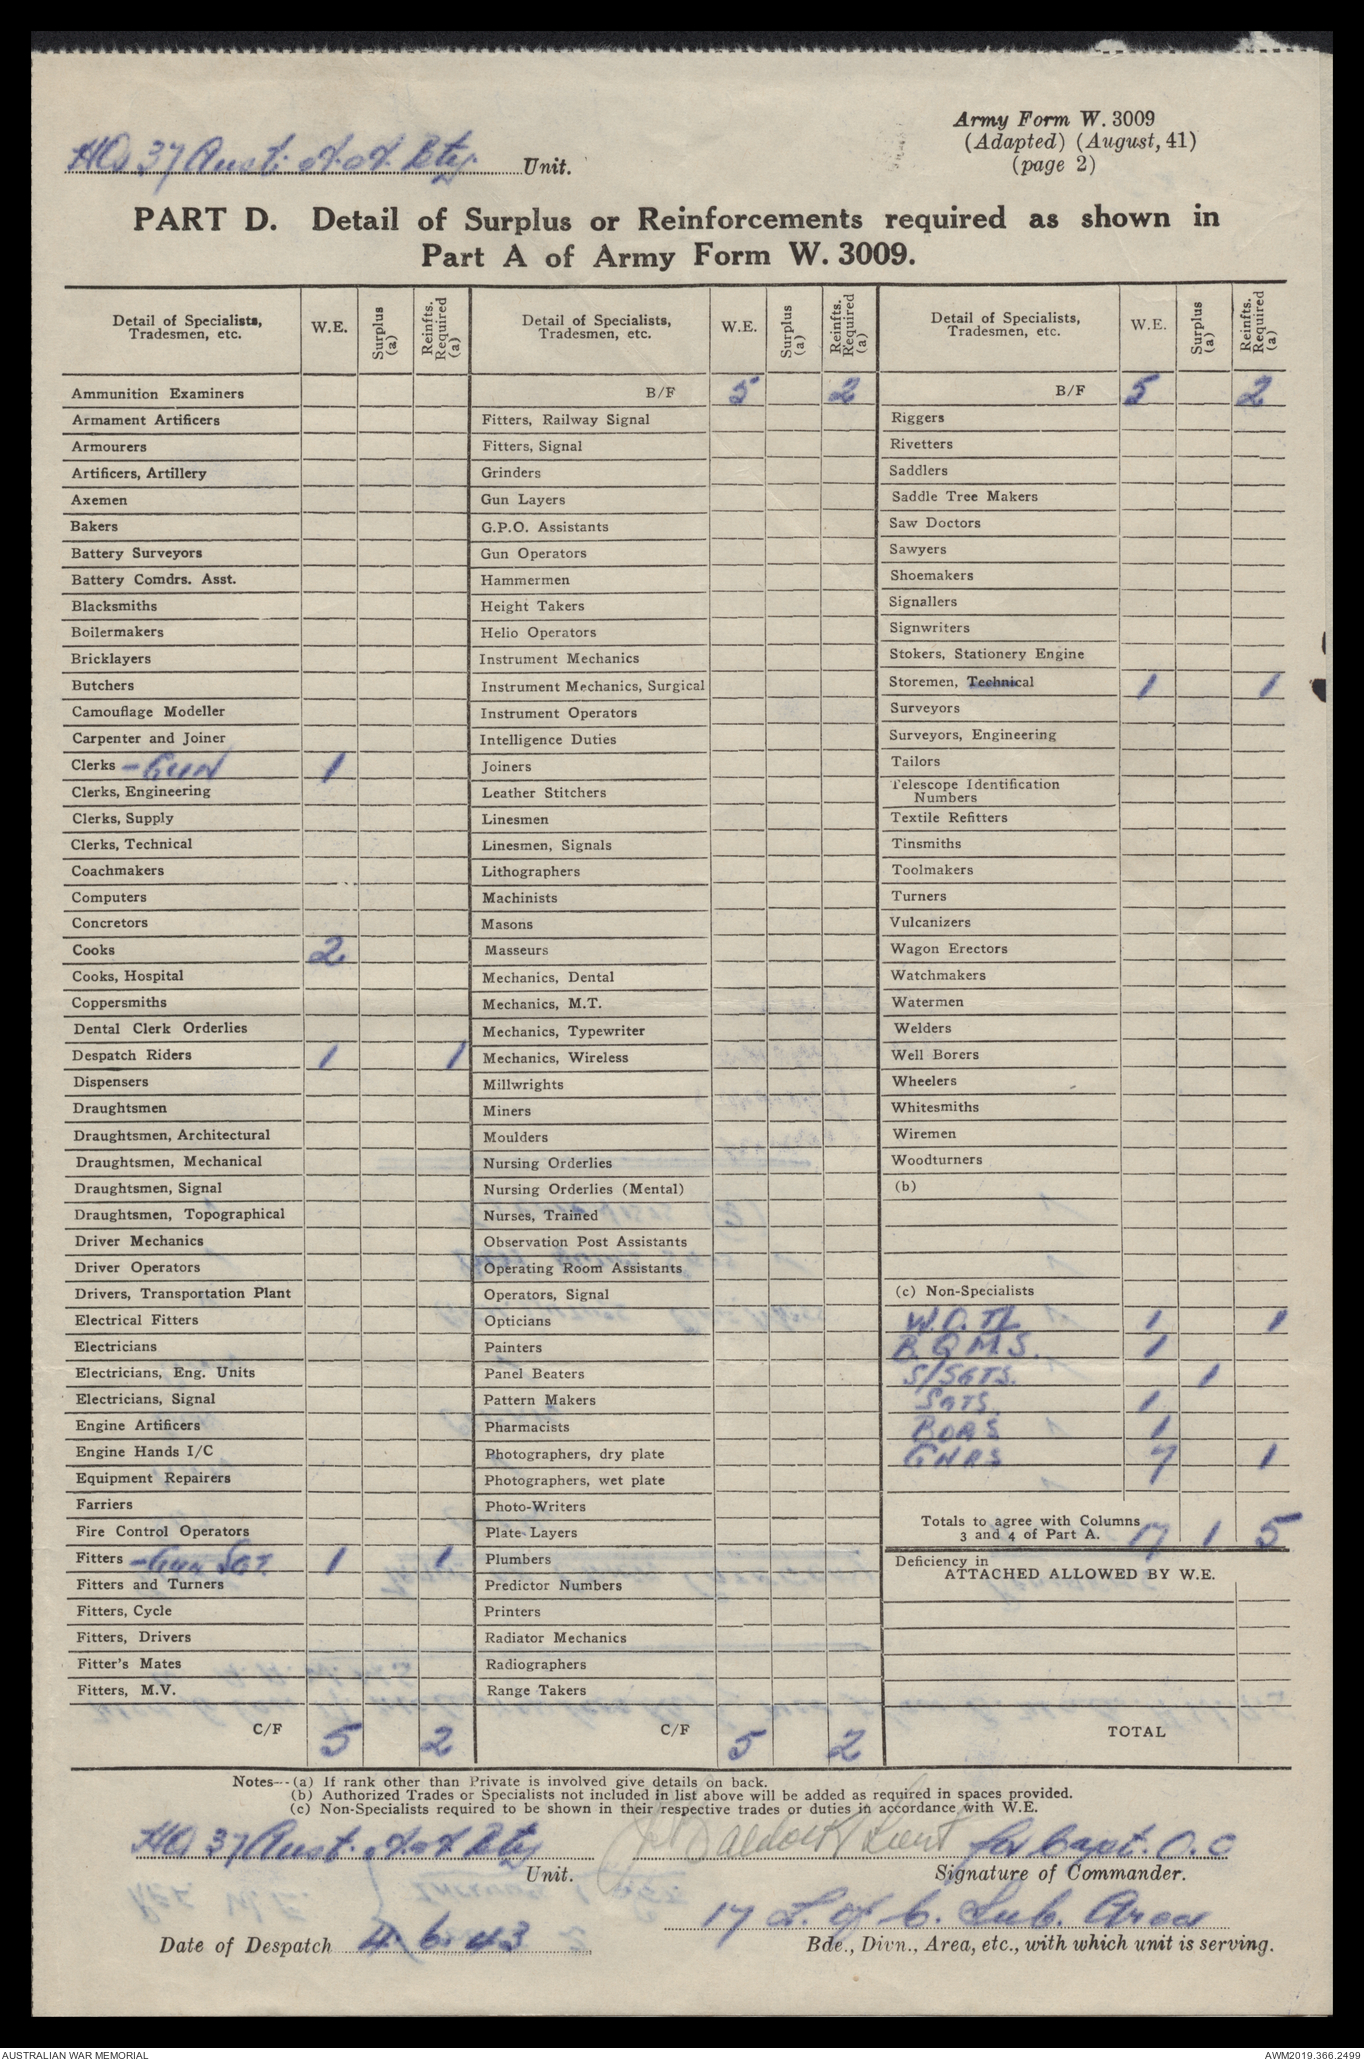 Army Form W. 3009
(Adapted) (August, 41)
(page 2)
HQ 37 Aust. A.A. Bty. Unit.
PART D. Detail of Surplus or Reinforcements required as shown in
Part A of Army Form W. 3009.
Detail of Specialists, Tradesmen, etc. W.E. Surplus (a) Reinfts. Required (a)
Ammunition Examiners
Armament Artificers
Armourers
Artificers, Artillery
Axemen
Bakers
Battery Surveyors
Battery Comdrs. Asst.
Blacksmiths
Boilermakers
Bricklayers
Butchers
Camouflage Modeller
Carpenter and Joiner
Clerks - GUN 1
Clerks, Engineering
Clerks, Supply
Clerks, Technical
Coachmakers
Computers
Concretors
Cooks 2
Cooks, Hospital
Coppersmiths
Dental Clerk Orderlies
Despatch Riders 1 1
Dispensers
Draughtsmen
Draughtsmen, Architectural
Draughtsmen, Mechanical
Draughtsmen, Signal
Draughtsmen, Topographical
Driver Mechanics
Driver Operators
Drivers, Transportation Plant
Electrical Fitters
Electricians
Electricians, Eng. Units
Electricians, Signal
Engine Artificers
Engine Hands I/C
Equipment Repairers
Farriers
Fire Control Operators
Fitters - Gun SGT 1 1
Fitters and Turners
Fitters, Cycle
Fitters, Drivers
Fitter's Mates
Fitters, M.V.
C/F 5 2
Detail of Specialists, Tradesmen, etc. W.E. Surplus (a) Reinfts. Required (a)
B/F 5 2
Fitters, Railway Signal
Fitters, Signal
Grinders
Gun Layers
G.P.O. Assistants
Gun Operators
Hammermen
Height Takers
Helio Operators
Instrument Mechanics
Instrument Mechanics, Surgical
Instrument Operators
Intelligence Duties
Joiners
Leather Stitchers
Linesmen
Linesmen, Signals
Lithographers
Machinists
Masons
Masseurs
Mechanics, Dental
Mechanics, M.T.
Mechanics, Typewriter
Mechanics, Wireless
Millwrights
Miners
Moulders
Nursing Orderlies
Nursing Orderlies (Mental)
Nurses, Trained
Observation Post Assistants
Operating Room Assistants
Operators, Signal
Opticians
Painters
Panel Beaters
Pattern Makers
Pharmacists
Photographers, dry plate
Photographers, wet plate
Photo-Writers
Plate Layers
Plumbers
Predictor Numbers
Printers
Radiator Mechanics
Radiographers
Range Takers
C/F 5 2
Detail of Specialists, Tradesmen, etc. W.E. Surplus (a) Reinfts. Required (a)
B/F 5 2
Riggers
Rivetters
Saddlers
Saddle Tree Makers
Saw Doctors
Sawyers
Shoemakers
Signallers
Signwriters
Stokers, Stationery Engine
Storemen, Technical 1 1
Surveyors
Surveyors, Engineering
Tailors
Telescope Identification
Numbers
Textile Refitters
Tinsmiths
Toolmakers
Turners
Vulcanizers
Wagon Erectors
Watchmakers
Watermen
Welders
Well Borers
Wheelers
Whitesmiths
Wiremen
Woodturners
(b)
(c) Non-Specialists
W.O. II 1 1
B.Q.M.S. 1
S/SGTS. 1
SGTS. 1
BDRS 1
GNRS 7 1
Totals to agree with Columns
3 and 4 of Part A. 17 1 5
Deficiency in
ATTACHED ALLOWED BY W.E.
TOTAL
Notes--(a) If rank other than Private is involved give details on back.
(b) Authorized Trades or Specialists not included in list above will be added as required in spaces provided.
(c) Non-Specialists required to be shown in their respective trades or duties in accordance with W.E.
HQ 37 Aust. A.A. Bty
Unit.
Baldock Lieut for Capt. O.C
Signature of Commander.
17 L. of C. Sub. Area
Date of Despatch 4. 6. 43
Bde., Divn., Area, etc., with which unit is serving.
AUSTRALIAN WAR MEMORIAL
AWM2019.366.2499